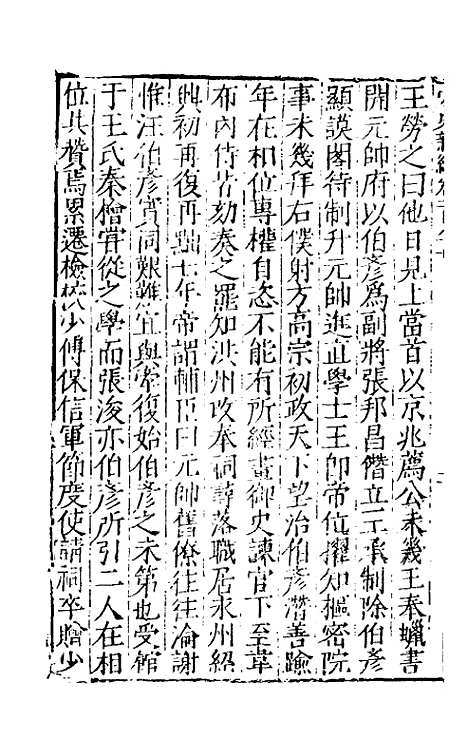 王勞之曰他日見上當首以京兆薦公未幾王奉蠟書
開元帥府以伯彥爲副將張邦昌僭立王承制除伯彥
顯謨閣待制升元帥進直學士王即帝位擢知樞密院
事未幾拜右僕射方高宗初政天下望治伯彥潛善踰
年在相位專權自恣不能有所經畫御史諫官下至韋
布內侍皆劾奏之罷知洪州改奉祠諱落職居永州紹
興初再復再黜七年帝謂輔臣曰元帥舊僚往往淪謝
惟汪伯彥實同艱難宜與牽復始伯彥之未第也受館
于王氏秦檜嘗從之學而張浚亦伯彥所引二人在相
位共贊焉累遷檢挍少傅保信軍節度使請祠卒贈少